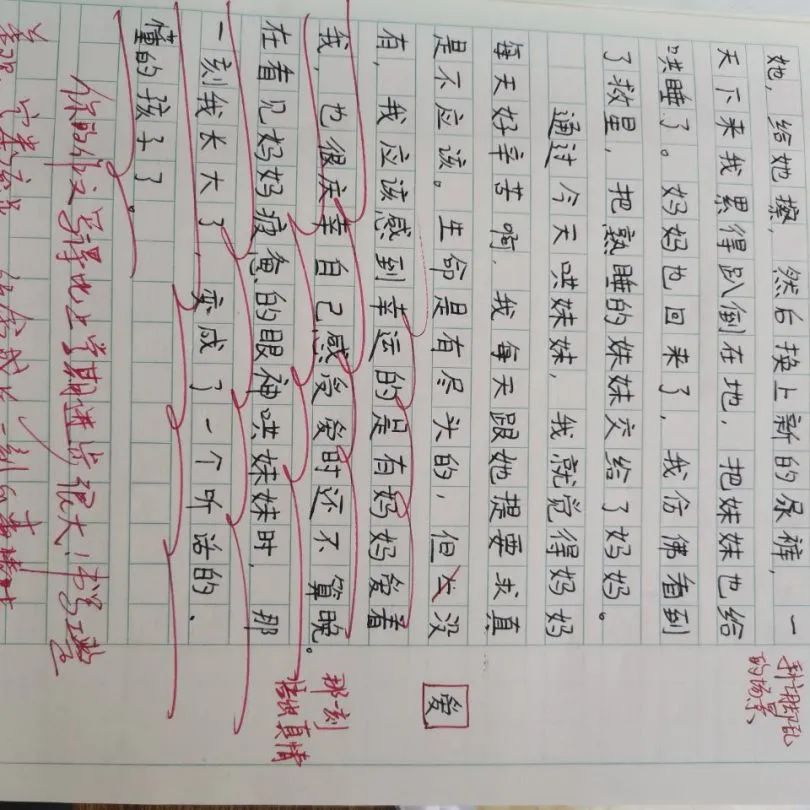 她，给她擦，然后换上新的尿裤，一
手忙脚乱
的场景
天下来我累得趴倒在地，把妹妹也给
哄睡了。妈妈也回来了，我仿佛看到
了救里，把熟睡的妹妹交给了妈妈。
通过今天哄妹妹，我就觉得妈妈
每天好辛苦啊，我每天跟她提要求真
是不应该。生命是有尽头的，但没
爱
有，我应该感到幸运的是有妈妈爱着
我，也很庆幸自己感受爱时还不算晚。
那一刻
真情
在看见妈妈疲惫的眼神哄妹妹时，那
一刻我长大了，变成了一个听话的、
懂的孩子了。
你的作文写得比上学期进步很大！书写工整